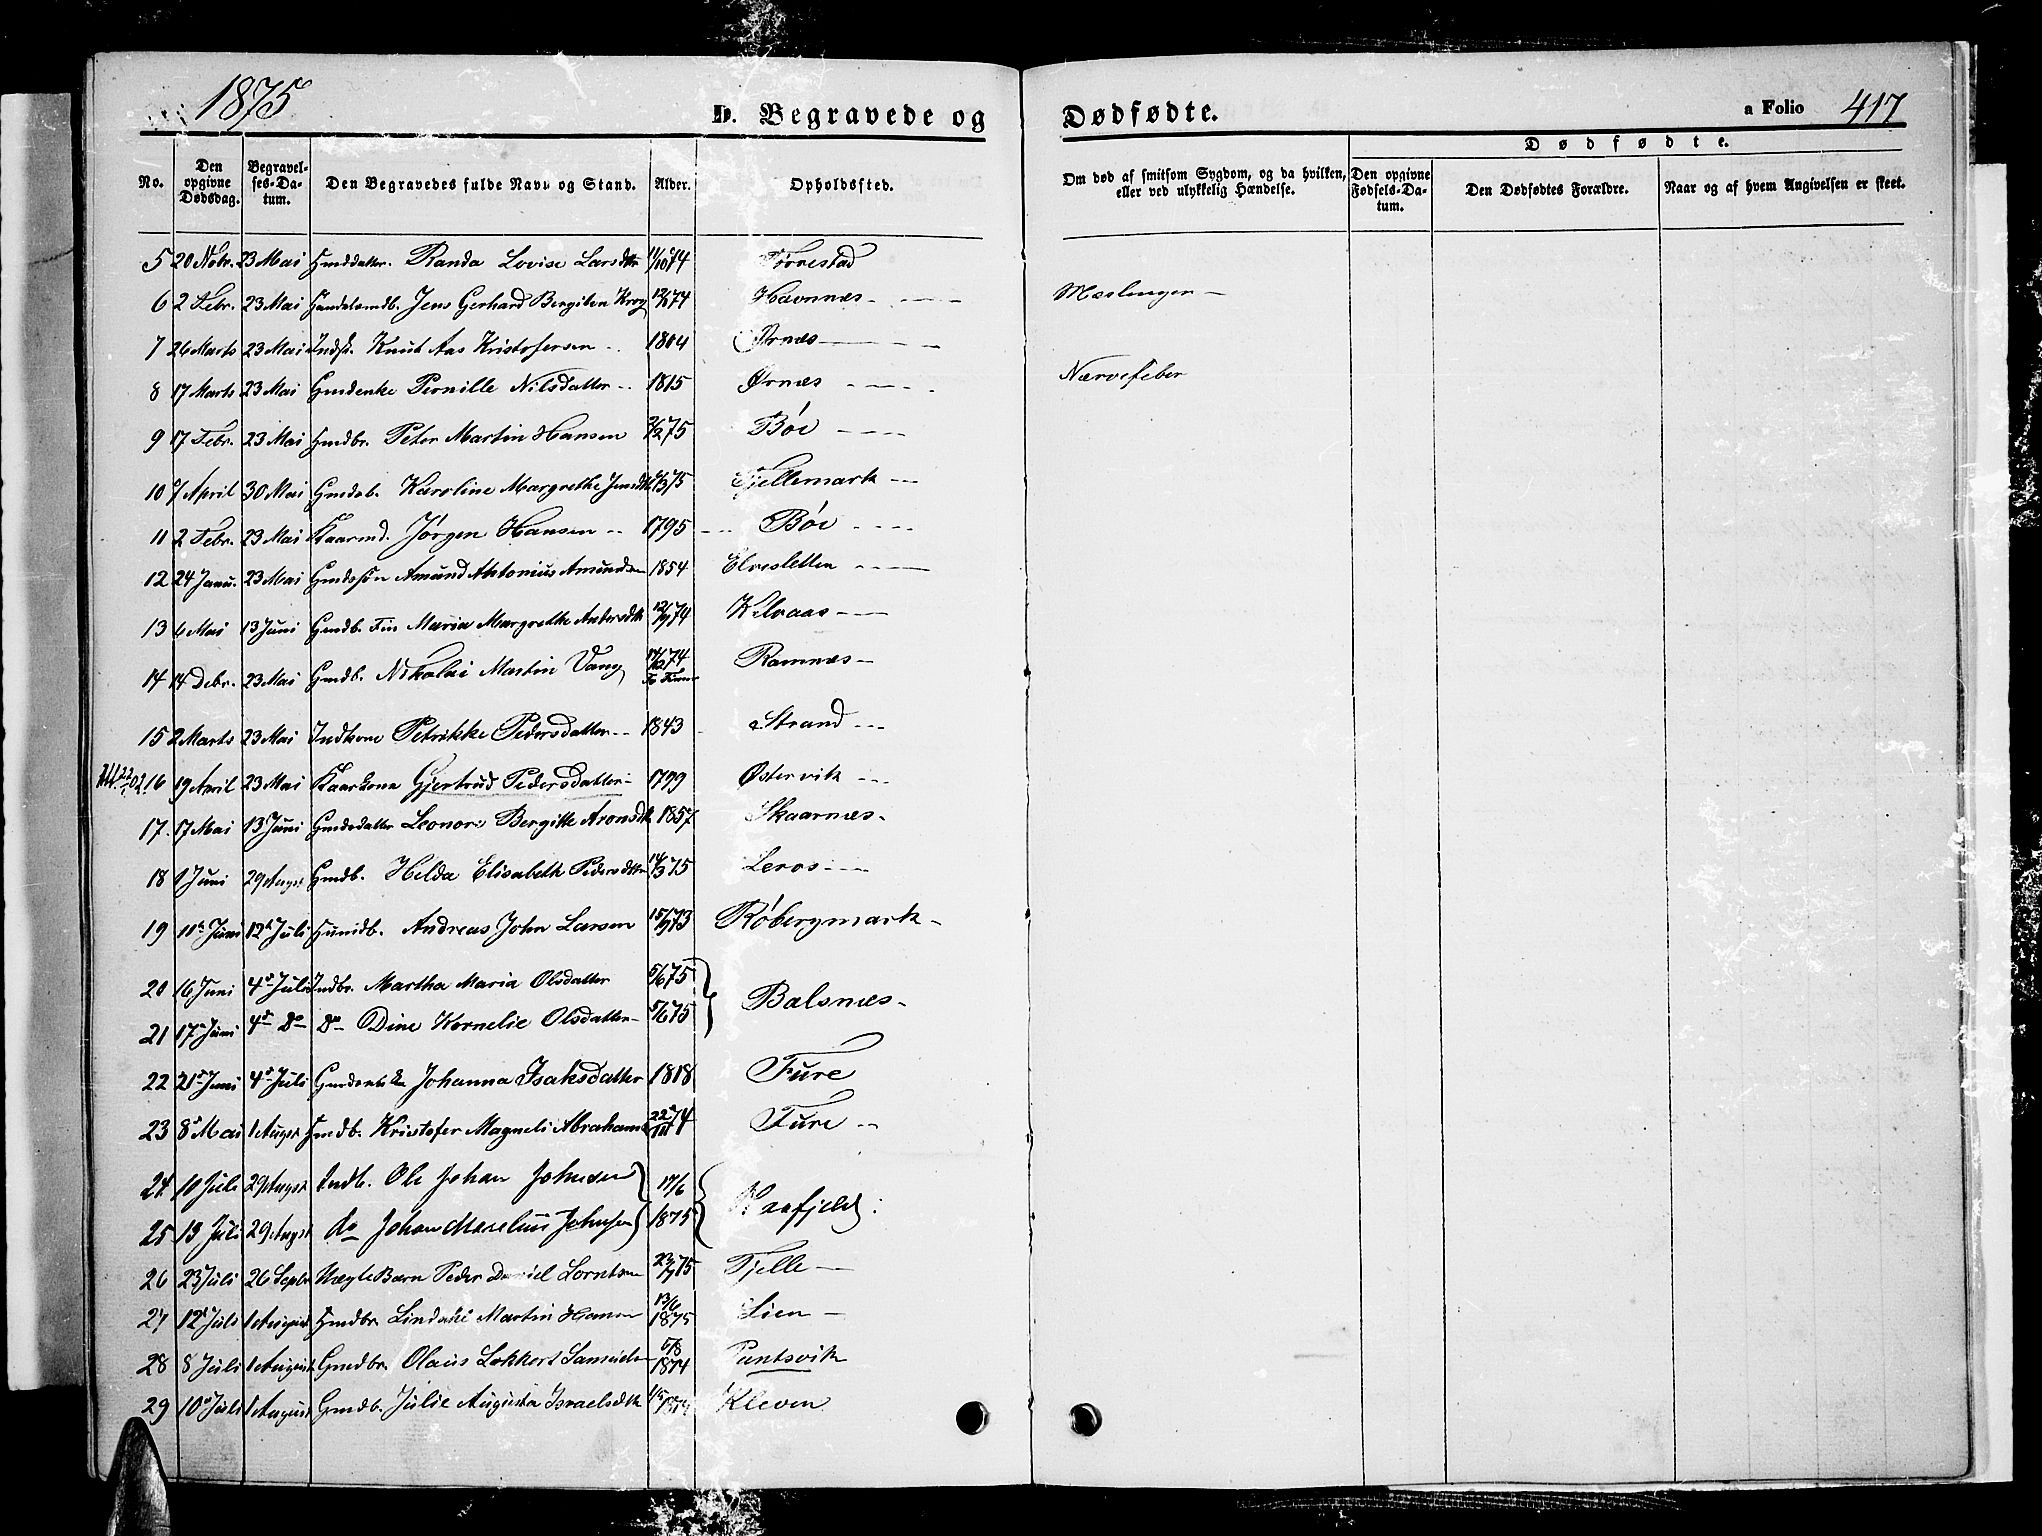 1875
D. Begravede og Dødfødte.
a Folio 417
Dødfødte.
No. Den opgivne Dødsdag. Begravelses-Datum. Den Begravedes fulde Navn og Stand. Alder. Opholdssted. Om død af smitsom Sygdom, og da hvilken, eller ved ulykkelig Hændelse. Den opgivne Fødsels-Datum. Den Dødfødtes Forældre. Naar og af hvem Angivelsen er skeet.
5 20 Nobr. 23 Mai Gmddatter. Randa Lovise Larsdtr 11/10 74 Tørrestad
6 2 Febr. 23 Mai Handelsmdb. Jens Gerhard Bergiten Krog 74 Havnnæs Mæslinger
7 26 Marts 23 Mai Indst. Knut Aas Kristofersen 1804 Ørnes
8 17 Marts 23 Mai Gmdenke Pernille Nilsdatter 1815 Ørnæs Nærvefeber
9 17 Febr. 23 Mai Gmdbr. Peter Martin Hansen 2/2 75 Bøe
10 7 April 30 Mai Gmdsb. Karoline Margrethe Jensdtr 75 Fjellemark
11 2 Febr. 23 Mai Kaarmd. Jørgen Hansen 1795 Bøe
12 24 Janu. 23 Mai Gmdssøn Amund Antonius Amundsen 1854 Elvesletten
13 6 Mai 13 Juni Gmdb. Fin Maria Margrethe Andersdtr 12/9 74 Kilvaas
14 14 Debr. 23 Mai Gmdb. Nikolai Martin Vang 74 Ramnæs
15 2 Marts 23 Mai Indkone Petrikke Pedersdatter 1843 Strand
16 19 April 23 Mai Kaarkona Gjertrud Pedersdatter 1799 Østervik
17. 17 Mai 13 Juni Gmdsdatter Leonore Bergitte Aronsdtr 1857 Skaarnæs
18 1 Juni 29 Augst Gmdb. Helda Elisabeth Pedersdtr 14/3 75 Leros
19 11te Juni 12te Juli Gmdb. Andreas John Larsen 15/9 73 Røbergmark
20 16 Juni 4de Juli Indbr. Martha Maria Olsdatter 5/6 75
21 17de Juni 4de Do Do Dine Kornelie Olsdatter 5/6 75 Balsnæs
22 21de Juni 4de Juli Johanna Isaksdatter 1818 Fure
23 8de Mai 1 Augst Gmdb. Kristofer Magneli Abrahams 22/11 74 Fure
24. 10 Juli 29 Augst Indb. Ole Johan Johnsen 17/6
25 13 Juli 29 Augst do Johan Maselius Johnsen 1875 Haafjeld
26 23 Juli 26 Septbr Uægte Barn Peder Daniel Lorntsen 22/7 75 Fjelle
27 12te Juli 1 August Gmdbr. Martin Hansen 13/6 1875 Lien
28 8 Juli 1 August Gmdbr. Olaus Lokkert Samuelsen 5/8 1874 Pantsvik
29 10de Juli 1 August Gmdb. Julie Augusta Israelsdtr 1874 Kleven